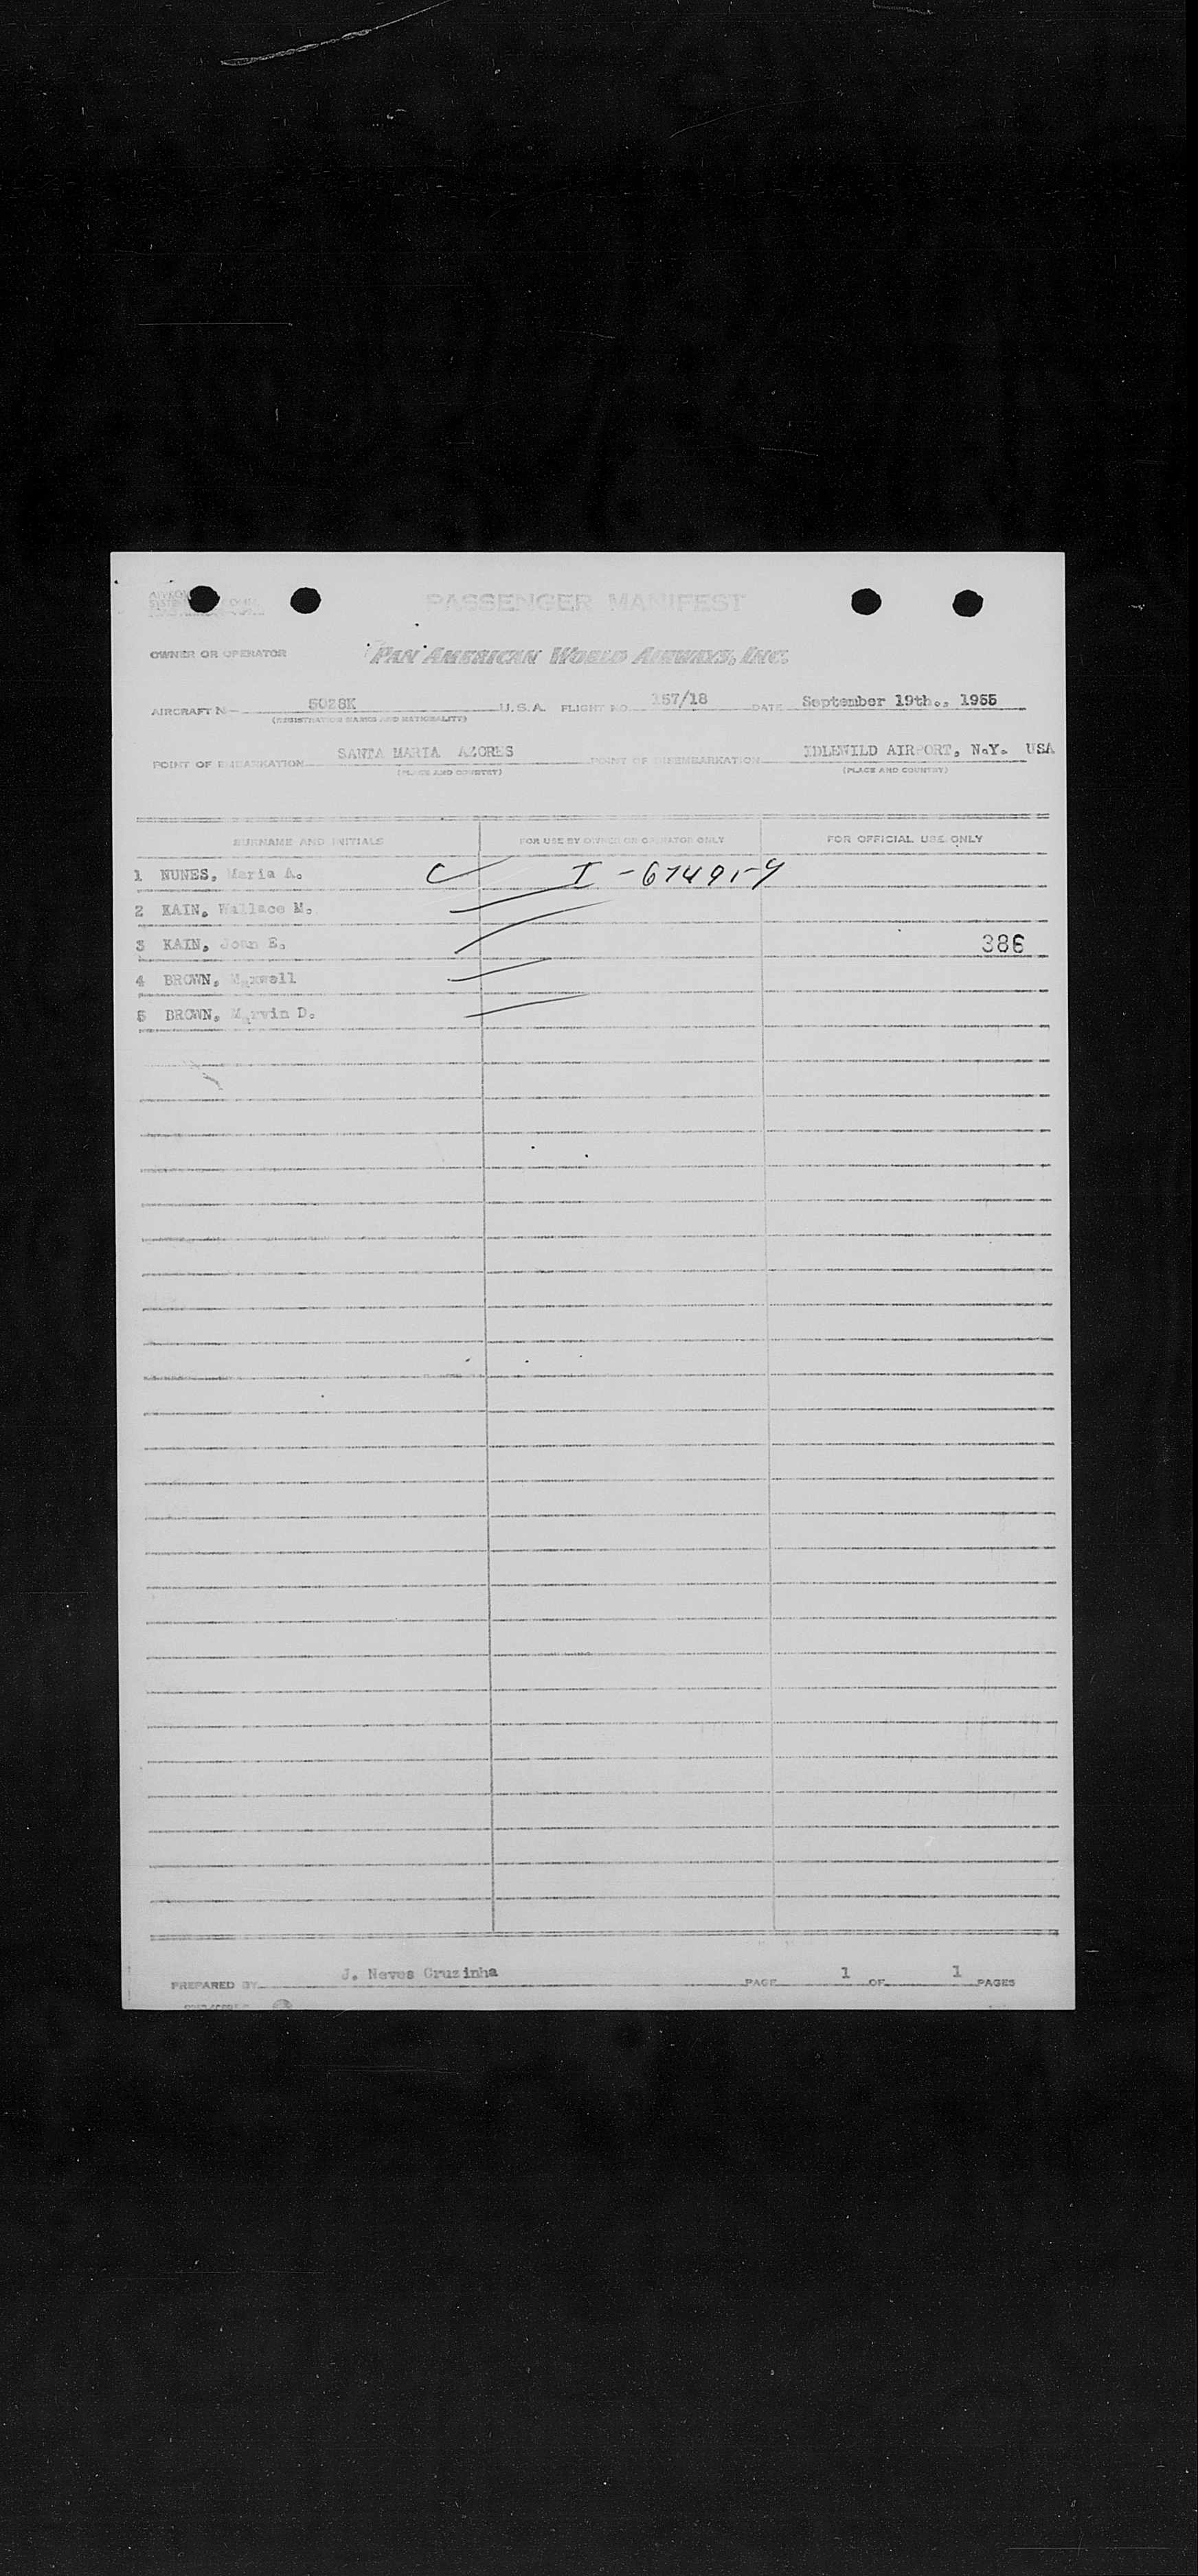 PASSENGER MANIFEST
OWNER OR OPERATOR PAN AMERICAN WORLD AIRWAYS, INC.
AIRCRAFT N 5028K U.S.A. FLIGHT NO. 157/18 DATE September 19th., 1955
(REGISTRATION MARKS AND NATIONALITY)
POINT OF EMBARKATION SANTA MARIA AZORES POINT OF DISEMBARKATION IDLEWILD AIRPORT, N.Y. USA
(PLACE AND COUNTRY) (PLACE AND COUNTRY)
SURNAME AND INITIALS FOR USE BY OWNER OR OPERATOR ONLY FOR OFFICIAL USE ONLY
1 NUNES, Maria A. C I-
2 KAIN, Wallace M.
3 KAIN, Joan E. 386
4 BROWN, Maxwell
5 BROWN, Marvin D.
PREPARED BY J. Neves Cruzinha PAGE 1 OF 1 PAGES